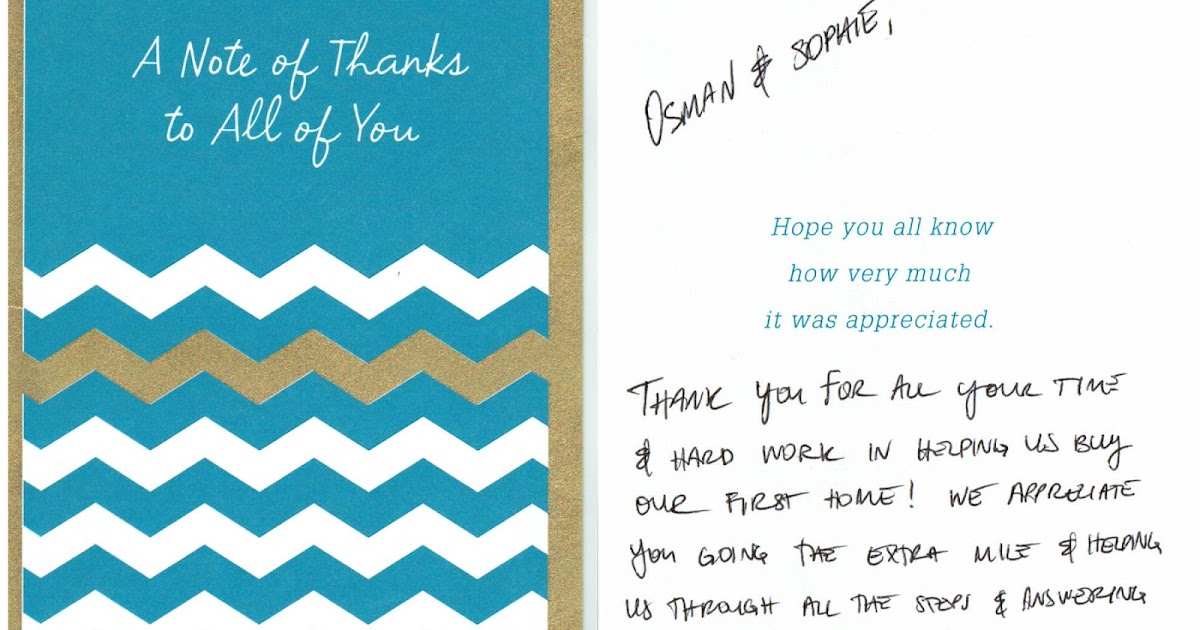 A Note of Thanks
to All of You
OSMAN & SOPHIE,
Hope you all know
how very much
it was appreciated.
THANK YOU FOR ALL YOUR TIME
& HARD WORK IN HELPING US BUY
OUR FIRST HOME! WE APPRECIATE
YOU GOING THE EXTRA MILE & HELPING
US THROUGH ALL THE STEPS & ANSWERING